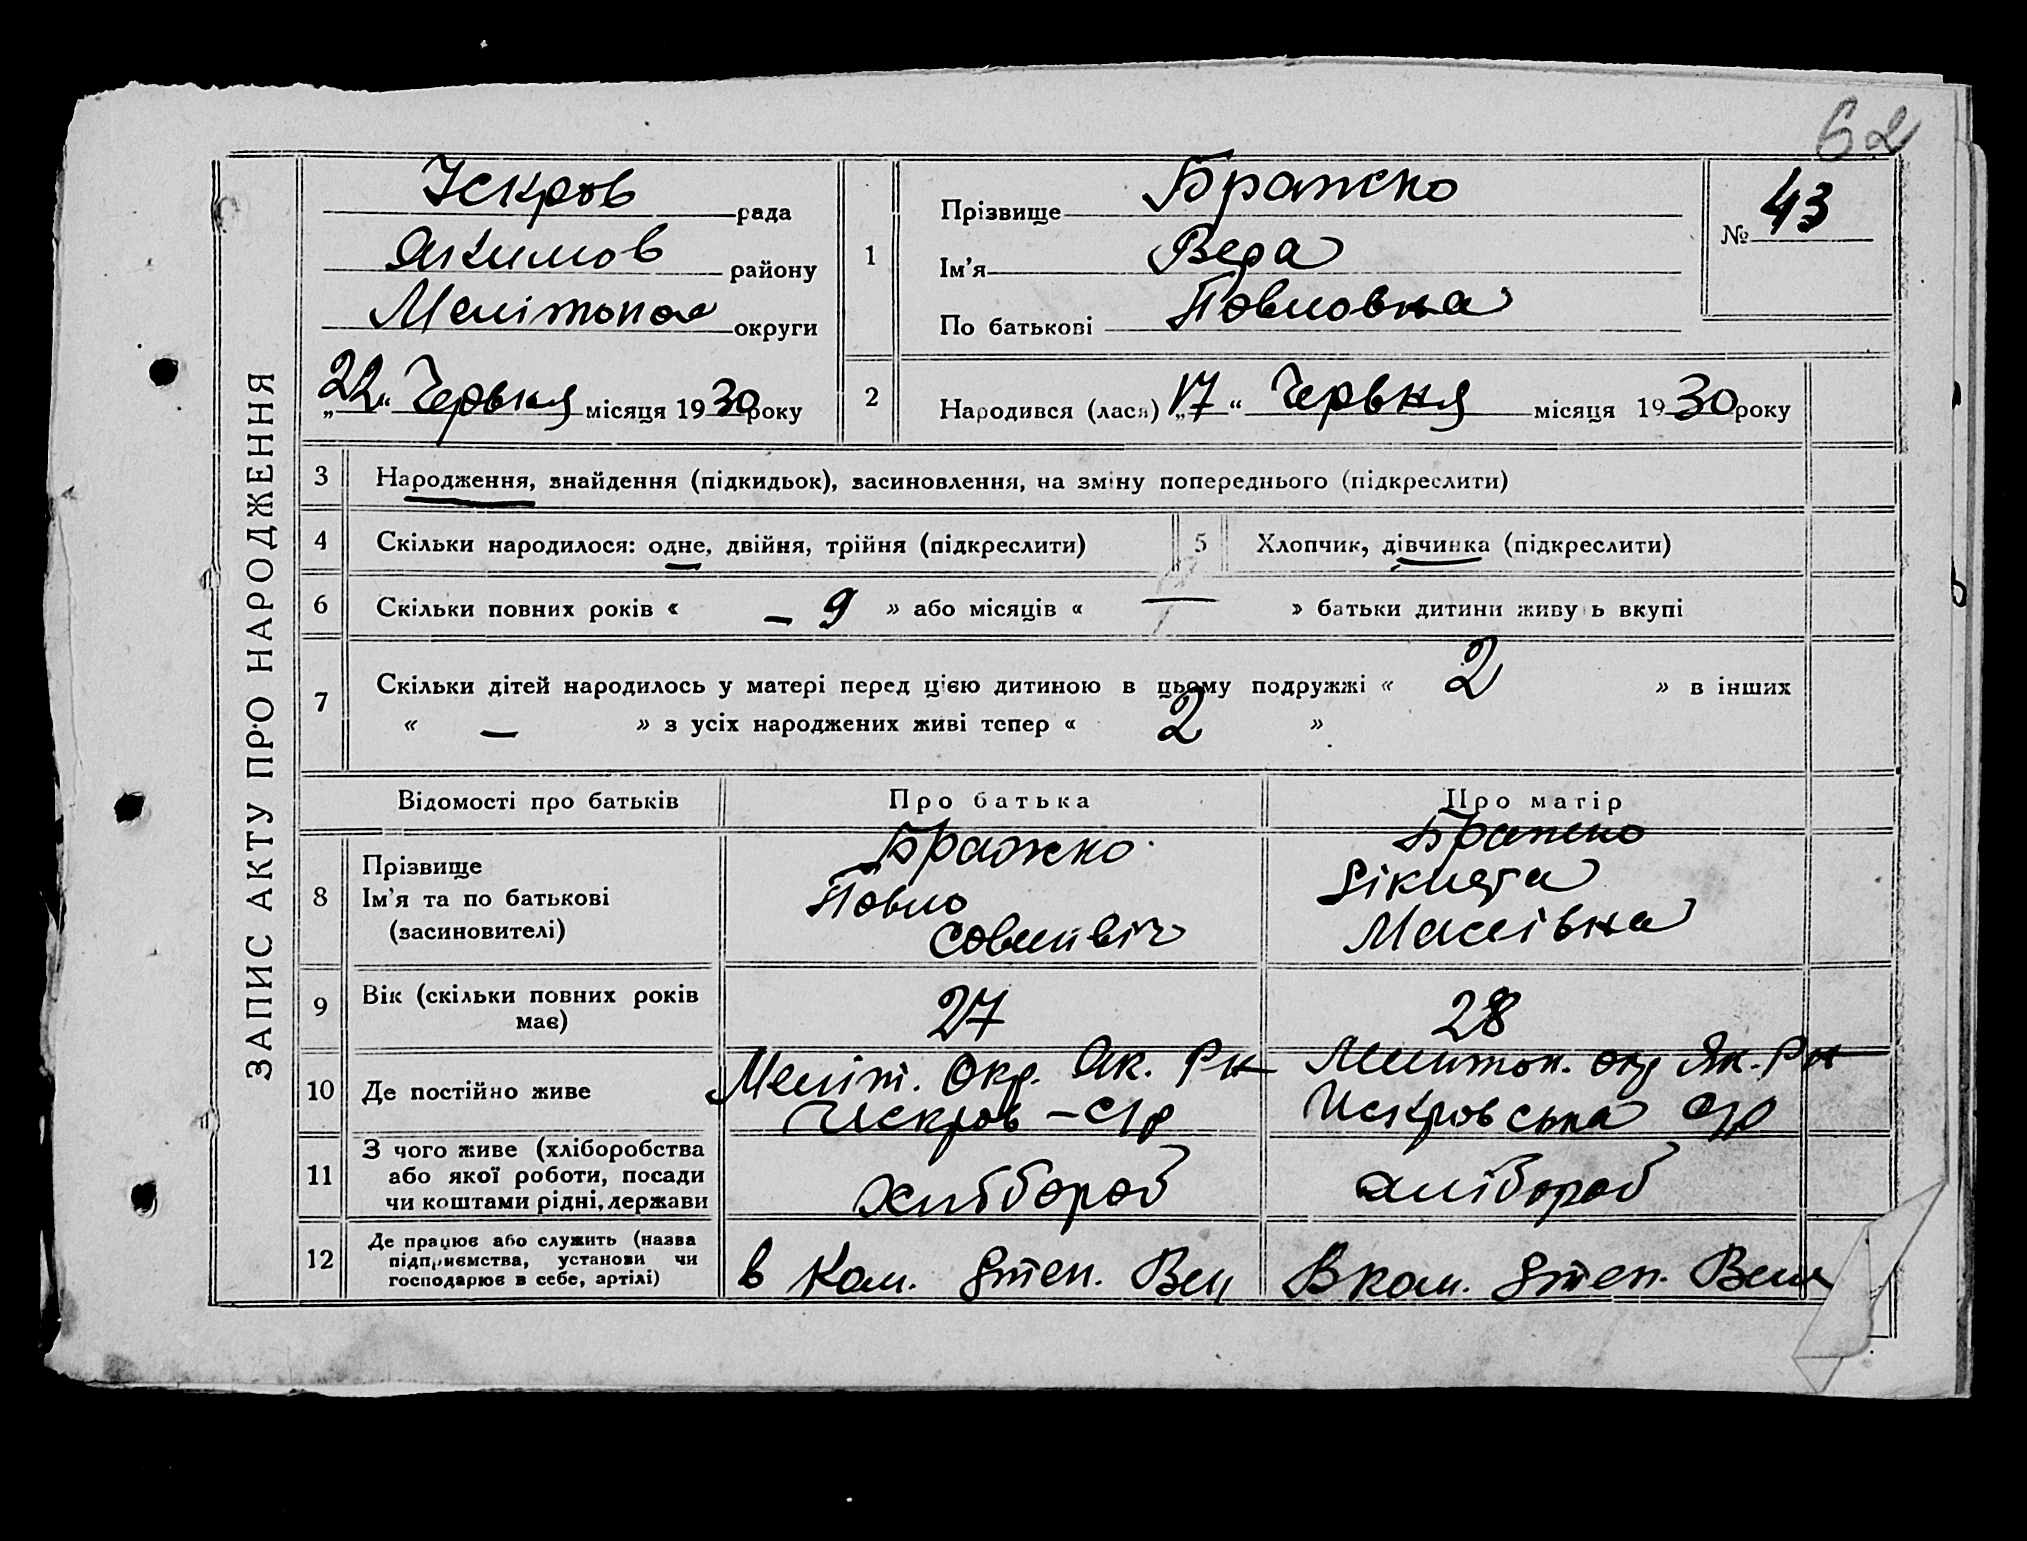 62
ЗАПИС АКТУ ПРО НАРОДЖЕННЯ
Іскров рада
Якимов району
Мелітопол округи
„22“ Червня місяця 1930 року
1
Прізвище Бражко
Ім'я Вера
По батькові Павловна
№ 43
2
Народився (лася) „17“ Червня місяця 1930 року
3 Народження, знайдення (підкидьок), засиновлення, на зміну попереднього (підкреслити)
4 Скільки народилося: одне, двійня, трійня (підкреслити)
5 Хлопчик, дівчинка (підкреслити)
6 Скільки повних років « – 9 » або місяців « — » батьки дитини живуь вкупі
7 Скільки дітей народилось у матері перед цією дитиною в цьому подружжі « 2 » в інших
« – » з усіх народжених живі тепер « 2 »
Відомості про батьків Про батька Про матір
8 Прізвище
Ім'я та по батькові
(засиновителі)
Бражко
Павло
Савливіч
Бражко
9 Вік (скільки повних років
має)
27
28
10 Де постійно живе
Меліт. Окр. Як. Рн
Искров – С/р
Мелитоп. окр Як. Рн
Искровська с/р
11 З чого живе (хліборобства
або якої роботи, посади
чи коштами рідні, держави
хлібороб
хлібороб
12 Де працює або служить (назва
підприємства, установи чи
господарює в себе, артілі)
в Ком. Степ. Вец
В ком. Степ.